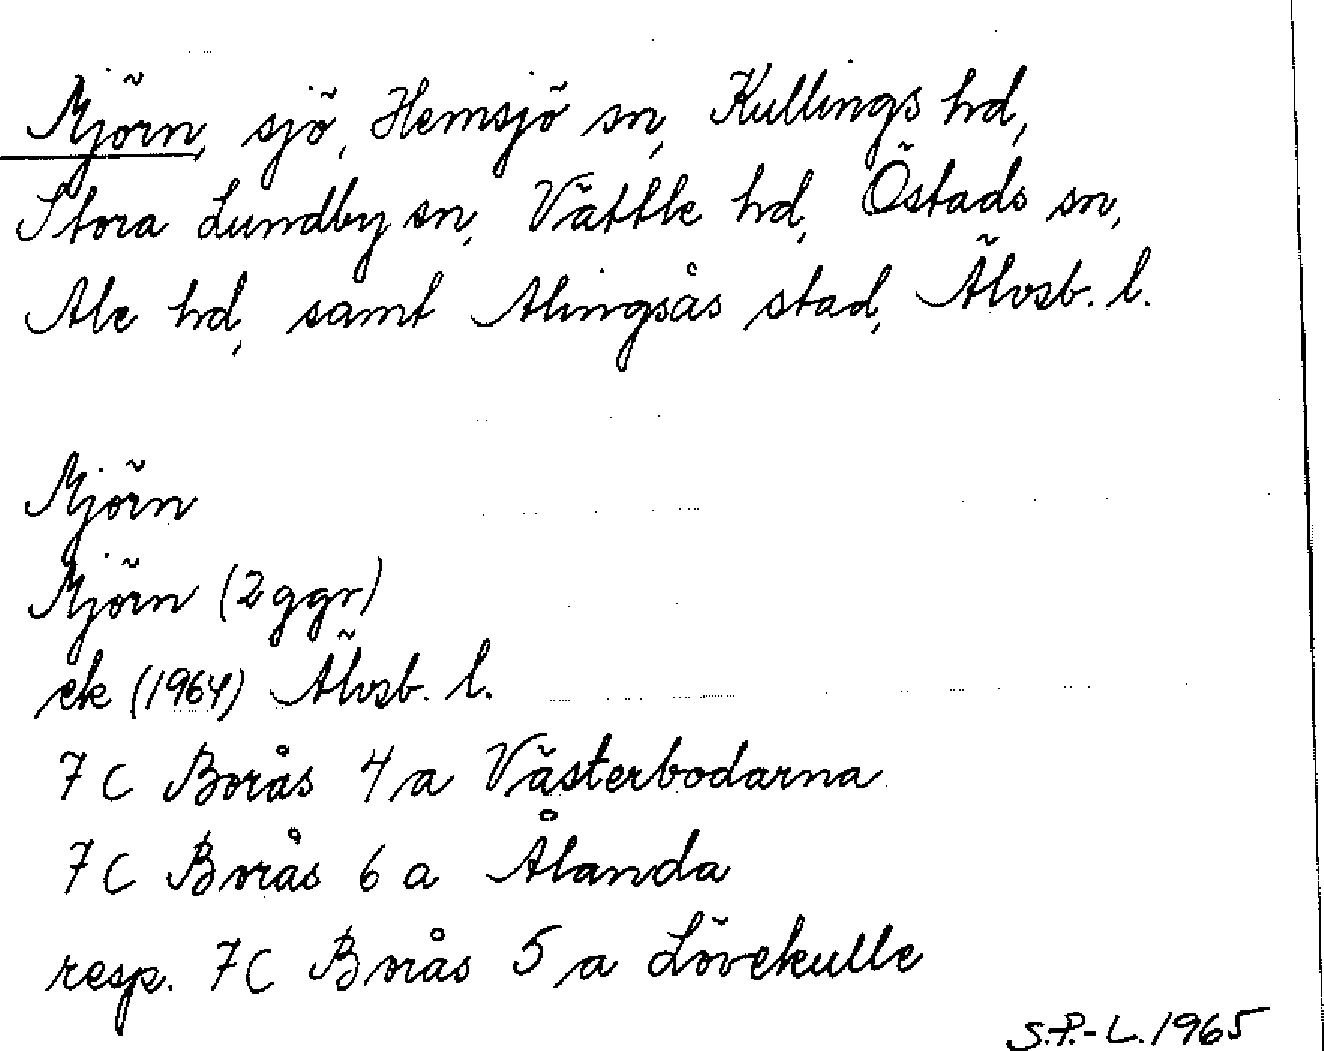 Mjörn, sjö, Hemsjö sn, Kullings hd,
Stora Lundby sn, Vättle hd, Östads sn,
Ale hd, samt Alingsås stad, Älvsb. l.
Mjörn
Mjörn (2 ggr)
ek (1964) Älvsb. l.
7 C Borås 4 a Västerbodarna
7 C Borås 6 a Ålanda
resp. 7 C Borås 5 a Lövekulle
S.P.-L. 1965